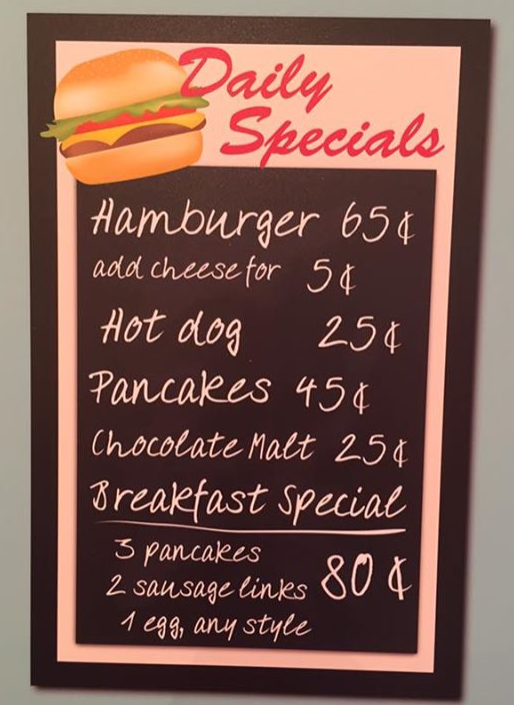 Daily
Specials
Hamburger 65¢
add cheese for 5¢
Hot dog 25¢
Pancakes 45¢
Chocolate Malt 25¢
Breakfast Special
3 pancakes
2 sausage links 80¢
1 egg, any style